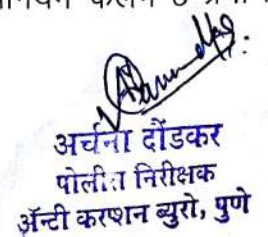 कलम
अर्चना दौंडकर
पोलीस निरीक्षक
ॲन्टी करप्शन ब्युरो, पुणे